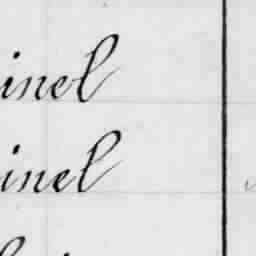 inel
inel